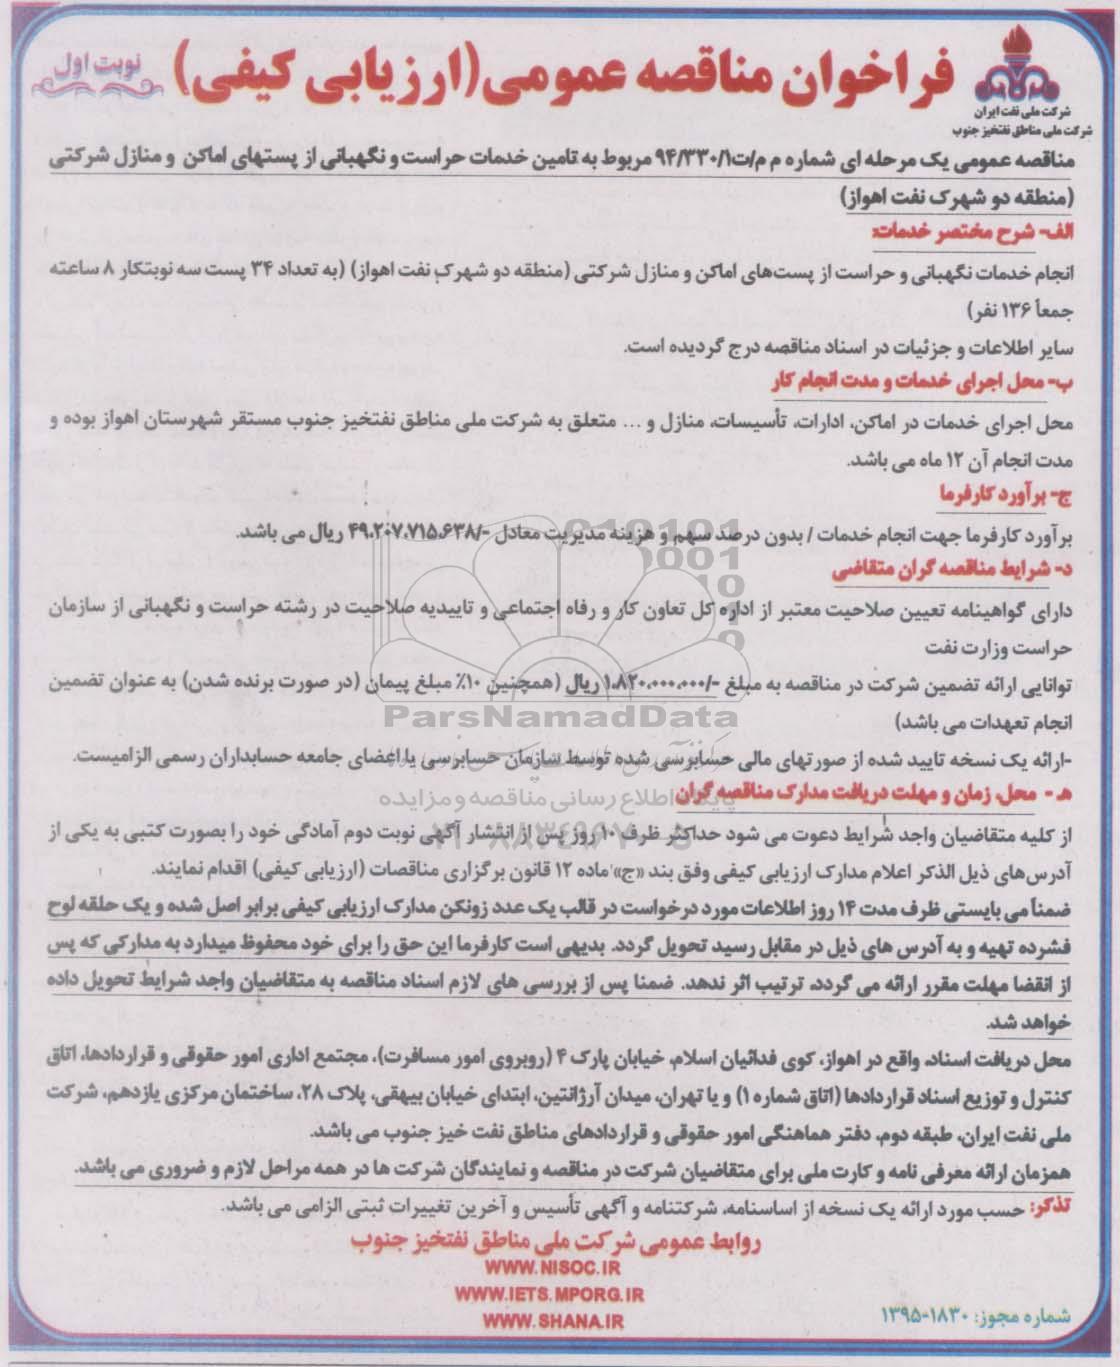 فراخوان مناقصه عمومی(ارزیابی کیفی)
نوبت اول
شرکت ملی نفت ایران
شرکت ملی مناطق نفتخیز جنوب
مناقصه عمومی یک مرحله ای شماره م م/ت۹۴/۳۳۰/۱ مربوط به تامین خدمات حراست و نگهبانی از پستهای اماکن و منازل شرکتی
(منطقه دو شهرک نفت اهواز)
الف- شرح مختصر خدمات:
انجام خدمات نگهبانی و حراست از پست‌های اماکن و منازل شرکتی (منطقه دو شهرک نفت اهواز) (به تعداد ۳۴ پست سه نوبتکار ۸ ساعته
جمعاً ۱۳۶ نفر)
سایر اطلاعات و جزئیات در اسناد مناقصه درج گردیده است.
ب- محل اجرای خدمات و مدت انجام کار
محل اجرای خدمات در اماکن، ادارات، تأسیسات، منازل و ... متعلق به شرکت ملی مناطق نفتخیز جنوب مستقر شهرستان اهواز بوده و
مدت انجام آن ۱۲ ماه می باشد.
ج- برآورد کارفرما
برآورد کارفرما جهت انجام خدمات / بدون درصد سهم و هزینه مدیریت معادل -/۴۹،۲۰۷،۷۱۵،۶۳۸ ریال می باشد.
د- شرایط مناقصه گران متقاضی
دارای گواهینامه تعیین صلاحیت معتبر از اداره کل تعاون کار و رفاه اجتماعی و تاییدیه صلاحیت در رشته حراست و نگهبانی از سازمان
حراست وزارت نفت
توانایی ارائه تضمین شرکت در مناقصه به مبلغ -/۱،۸۲۰،۰۰۰،۰۰۰ ریال (همچنین ۱۰٪ مبلغ پیمان (در صورت برنده شدن) به عنوان تضمین
انجام تعهدات می باشد)
ParsNamadData
-ارائه یک نسخه تایید شده از صورتهای مالی حسابرسی شده توسط سازمان حسابرسی یا اعضای جامعه حسابداران رسمی الزامیست.
هـ - محل، زمان و مهلت دریافت مدارک مناقصه گران
پایگاه اطلاع رسانی مناقصه و مزایده
از کلیه متقاضیان واجد شرایط دعوت می شود حداکثر ظرف ۱۰ روز پس از انتشار آگهی نوبت دوم آمادگی خود را بصورت کتبی به یکی از
آدرس‌های ذیل الذکر اعلام مدارک ارزیابی کیفی وفق بند «ج» ماده ۱۲ قانون برگزاری مناقصات (ارزیابی کیفی) اقدام نمایند.
ضمناً می بایستی ظرف مدت ۱۴ روز اطلاعات مورد درخواست در قالب یک عدد زونکن مدارک ارزیابی کیفی برابر اصل شده و یک حلقه لوح
فشرده تهیه و به آدرس های ذیل در مقابل رسید تحویل گردد. بدیهی است کارفرما این حق را برای خود محفوظ میدارد به مدارکی که پس
از انقضا مهلت مقرر ارائه می گردد، ترتیب اثر ندهد. ضمنا پس از بررسی های لازم اسناد مناقصه به متقاضیان واجد شرایط تحویل داده
خواهد شد.
محل دریافت اسناد، واقع در اهواز، کوی فدائیان اسلام، خیابان پارک ۴ (روبروی امور مسافرت)، مجتمع اداری امور حقوقی و قراردادها، اتاق
کنترل و توزیع اسناد قراردادها (اتاق شماره ۱) و یا تهران، میدان آرژانتین، ابتدای خیابان بیهقی، پلاک ۲۸، ساختمان مرکزی یازدهم، شرکت
ملی نفت ایران، طبقه دوم، دفتر هماهنگی امور حقوقی و قراردادهای مناطق نفت خیز جنوب می باشد.
همزمان ارائه معرفی نامه و کارت ملی برای متقاضیان شرکت در مناقصه و نمایندگان شرکت ها در همه مراحل لازم و ضروری می باشد.
تذکر: حسب مورد ارائه یک نسخه از اساسنامه، شرکتنامه و آگهی تأسیس و آخرین تغییرات ثبتی الزامی می باشد.
روابط عمومی شرکت ملی مناطق نفتخیز جنوب
WWW.NISOC.IR
WWW.IETS.MPORG.IR
WWW.SHANA.IR
شماره مجوز: ۱۸۳۰-۱۳۹۵